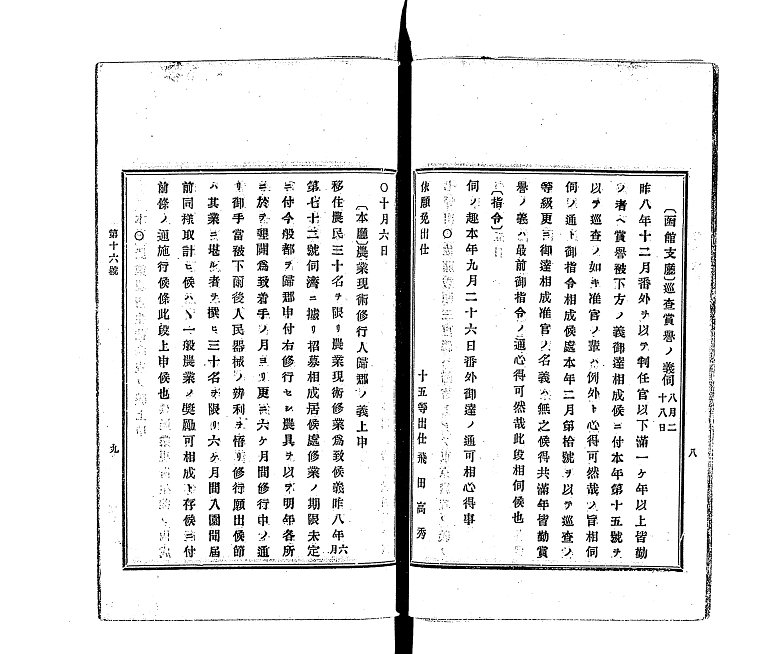 八
〔函館支廳〕巡査賞譽ノ義伺 八月二十八日
昨八年十二月番外ヲ以テ判任官以下滿一ケ年以上皆勤
ノ者ヘ賞譽被下方ノ義御達相成候ニ付本年第十五號ヲ
以テ巡査ノ如キ准官ノ輩ハ例外ト心得可然哉ノ旨相伺
伺ノ通ト御指令相成候處本年二月第拾號ヲ以テ巡査ノ
等級更ニ御達相成准官ノ名義ハ無之候得共滿年皆勤賞
譽ノ義ハ最前御指令ノ通心得可然哉此段相伺候也
〔指令〕
伺ノ趣本年九月二十六日番外御達ノ通可相心得事
十五等出仕 飛田高秀
依願免出仕
〇十月六日
〔本廳〕農業現術修行人歸郡ノ義上申
移住農民三十名ヲ限リ農業現術修業爲致候義昨八年六月
第七十二號伺濟ニ據リ招募相成居候處修業ノ期限未定
ニ付今般都テ歸郡申付右修行セシ農具ヲ以テ明年各所
ニ於テ墾開爲致着手ノ月ヨリ更ニ六ケ月間修行中ノ通
リ御手當被下爾後人民器械ノ辨利ヲ悟リ修行願出候節
ハ其業ニ堪ル者ヲ撰ミ三十名ヲ限リ六ケ月間入園問届
前同様取計ヒ候ハヽ一般農業ノ奬勵可相成ト存候ニ付
前條ノ通施行候條此段上申候也
第十六號
九